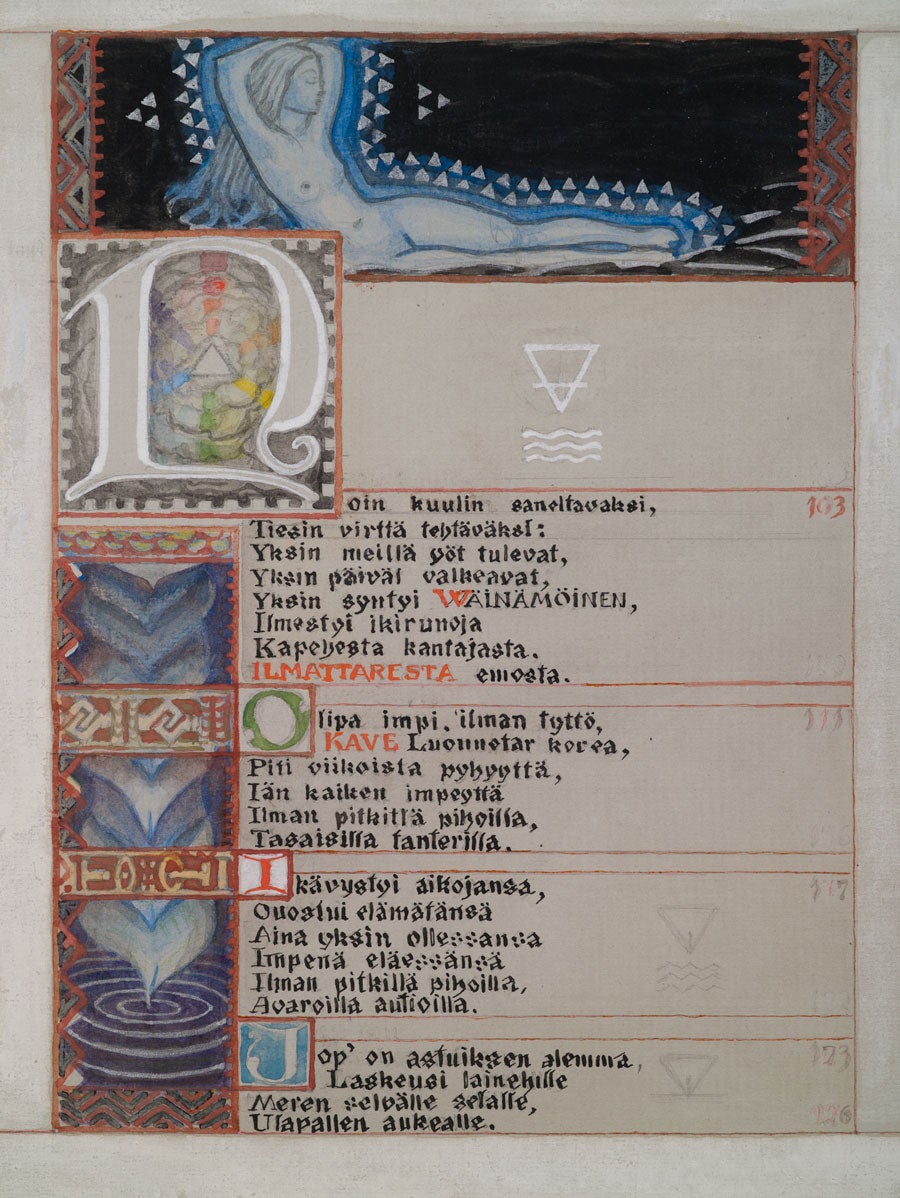 Noin kuulin saneltavaksi, 103
Tiesin virttä tehtäväksi:
Yksin meillä yöt tulevat,
Yksin päivät valkeavat,
Yksin syntyi WÄINÄMÖINEN,
Ilmestyi ikirunoja
Kapehesta kantajasta.
ILMATTARESTA emosta.
Olipa impi, ilman tyttö, 111
KAVE Luonnetar korea,
Piti viikoista pyhyyttä,
Iän kaiken impeyttä
Ilman pitkillä pihoilla,
Tasaisilla tanterilla.
Ikävystyi aikojansa, 117
Ouostui elämätänsä
Aina yksin ollessansa
Impenä eläessänsä
Ilman pitkillä pihoilla,
Avaroilla autioilla.
Jop' on astuiksen alemma, 123
Laskeusi lainehille
Meren selvälle selälle,
Ulapallen aukealle. 126